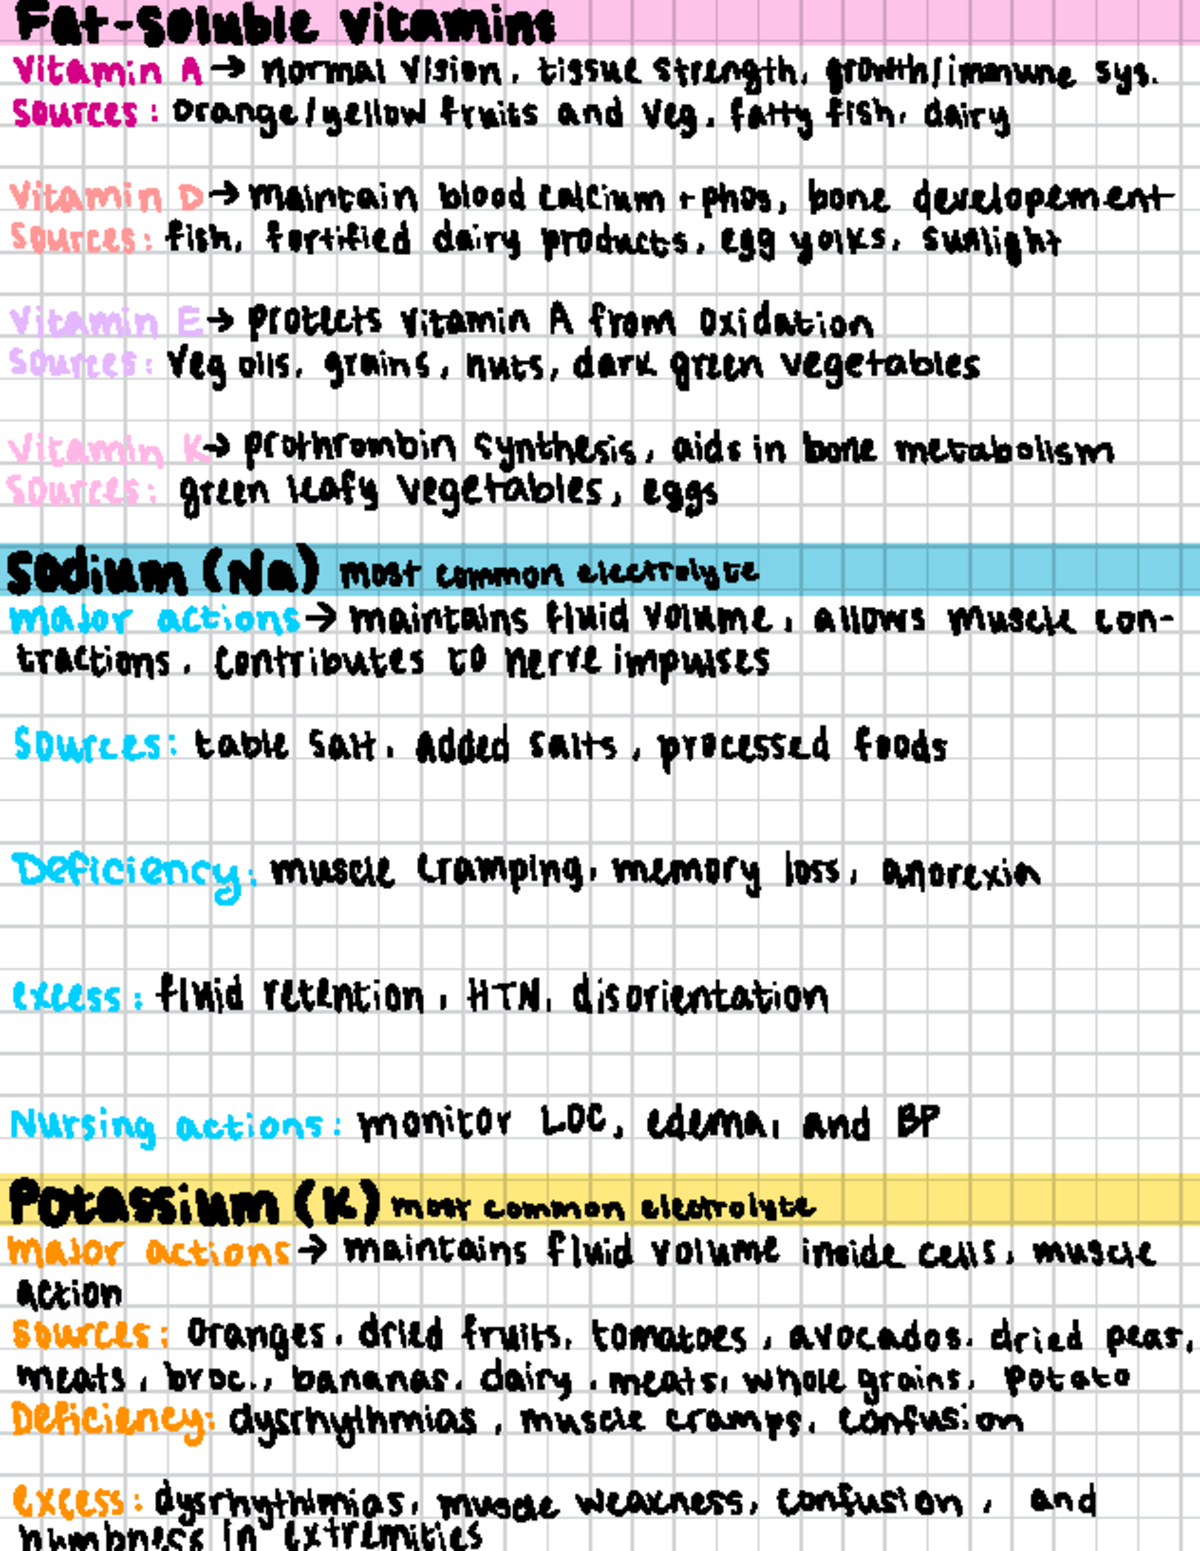 Fat-Soluble Vitamins
Vitamin A → normal vision, tissue strength, growth/immune sys.
Sources: orange/yellow fruits and veg, fatty fish, dairy
Vitamin D → maintain blood calcium + phos, bone developement
Sources: fish, fortified dairy products, egg yolks, sunlight
Vitamin E → protects vitamin A from oxidation
Sources: veg oils, grains, nuts, dark green vegetables
Vitamin K → prothrombin synthesis, aids in bone metabolism
Sources: green leafy vegetables, eggs
Sodium (Na) most common electrolyte
major actions → maintains fluid volume, allows muscle con-
tractions, contributes to nerve impulses
Sources: table salt, added salts, processed foods
Deficiency: muscle cramping, memory loss, anorexia
excess: fluid retention, HTN, disorientation
Nursing actions: monitor LOC, edema, and BP
Potassium (K) most common electrolyte
major actions → maintains fluid volume inside cells, muscle
action
Sources: oranges, dried fruits, tomatoes, avocados, dried peas,
meats, broc., bananas, dairy, meats, whole grains, potato
Deficiency: dysrhythmias, muscle cramps, confusion
excess: dysrhythmias, muscle weakness, confusion, and
numbness in extremities